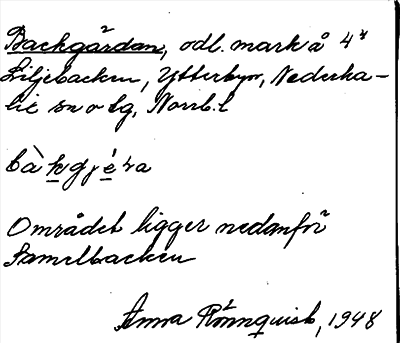 Backgårdan, odl. mark å 4
Liljebacken, Ytterbyn, Nederka-
lix sn o tg, Norrb. l
Området ligger nedanför
Samelbacken
Anna Rönnquist, 1948